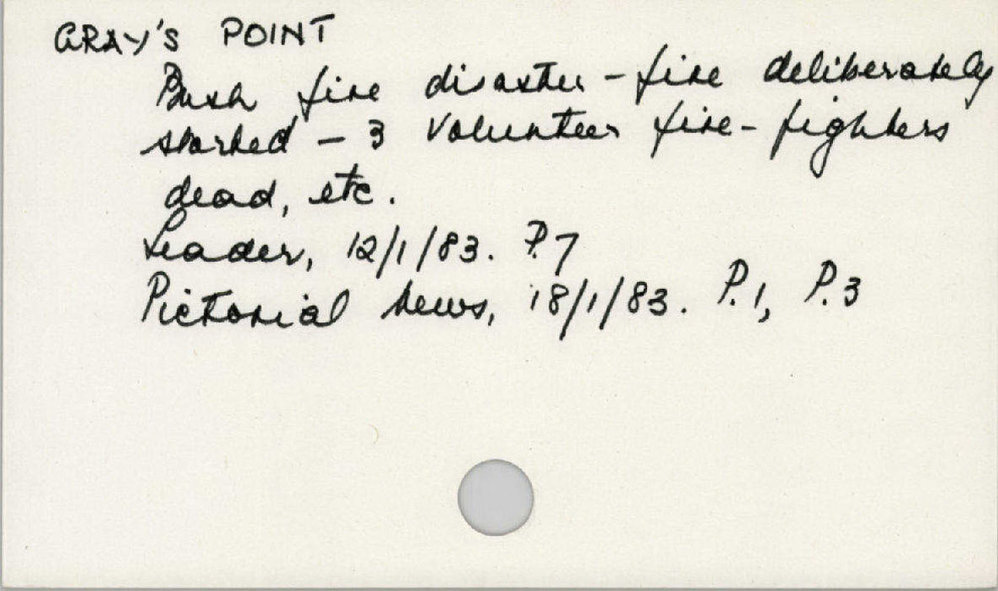 GRAY'S POINT
Bush fire disaster - fire deliberately
started - 3 Volunteer fire-fighters
dead, etc.
Leader, 12/1/83. P.7
Pictorial News, 18/1/83. P.1, P.3